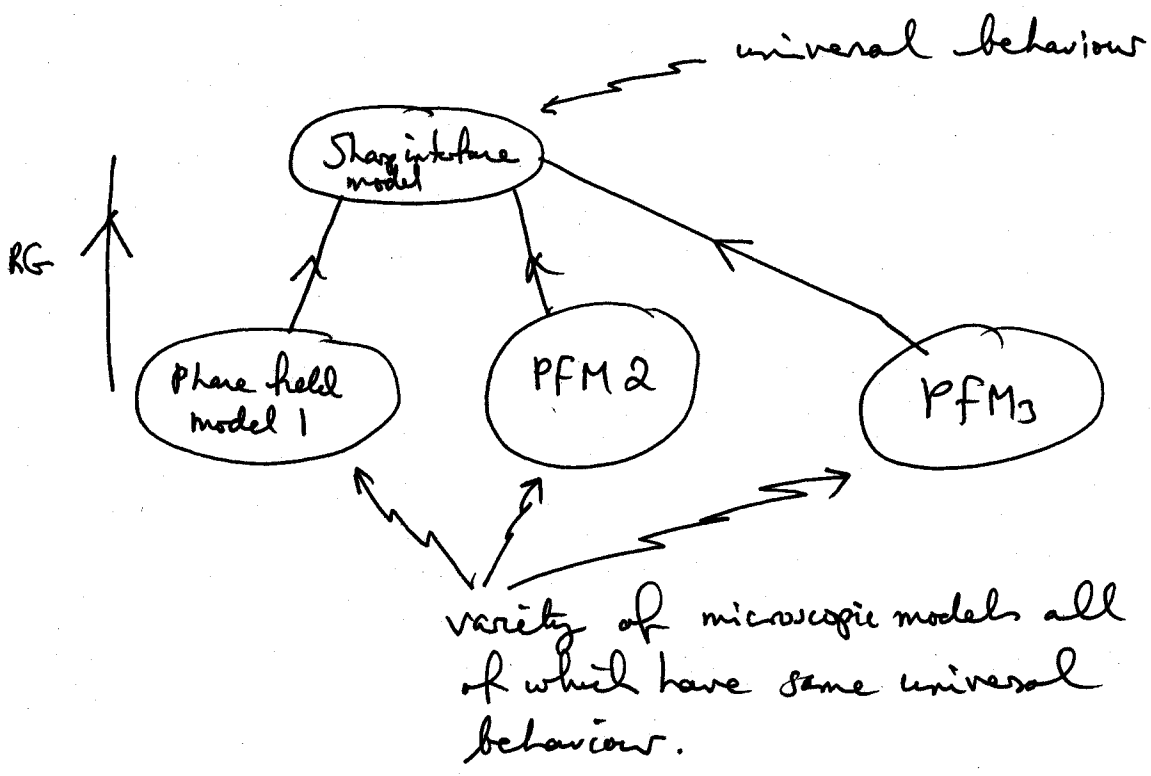 universal behaviour
Sharp interface
model
RG
Phase field
model 1
PFM 2
PFM3
variety of microscopic models all
of which have same universal
behaviour.